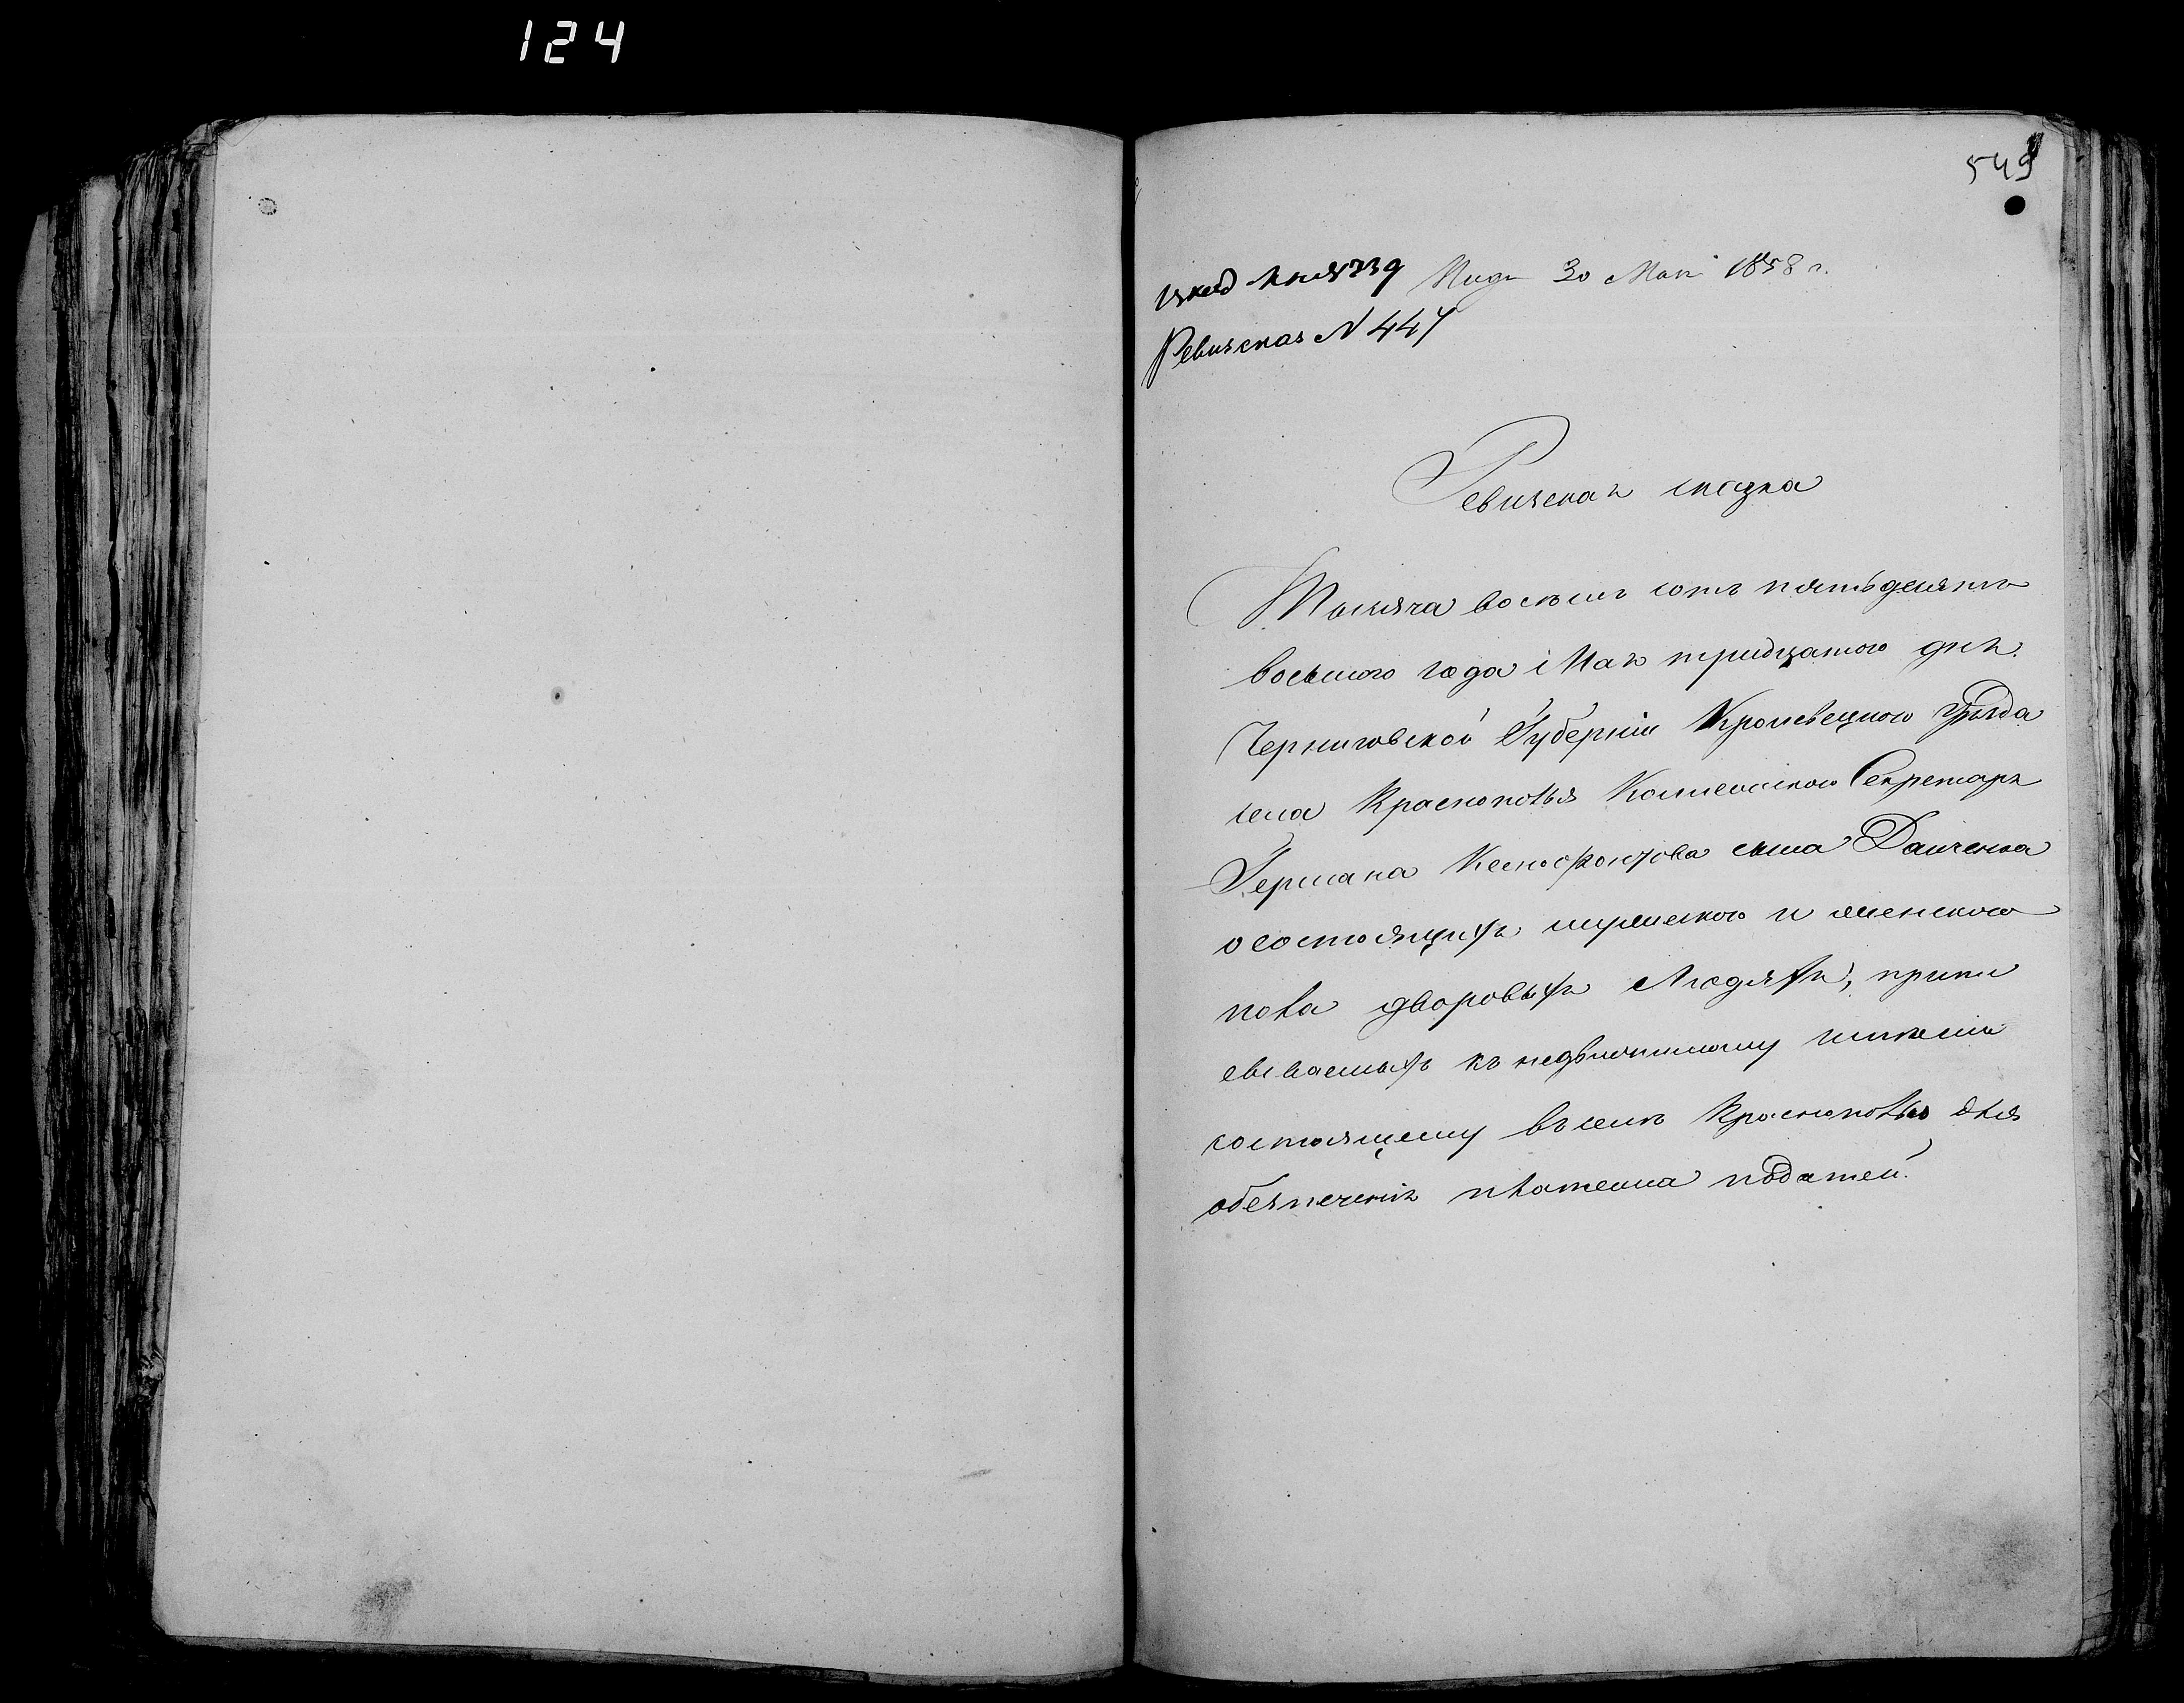 124
549
вход № 4739 Пода 30 Мая 1858 г.
Ревизская № 447
Ревизская сказка
Тысяча восемь сотъ пятьдесятъ
восьмого года Мая тридцатого дня
Черниговской Губерніи Кролевецкого уѣзда
села Краснополья Коллежского Секретаря
Германа Ксенофонтова сына Данченка
о состоящихъ мужеского и женского
пола дворовыхъ людяхъ, припи
сываемыхъ къ недвижимому имѣнію
состоящему въ селѣ Краснопольѣ для
обезпеченія платежа податей.